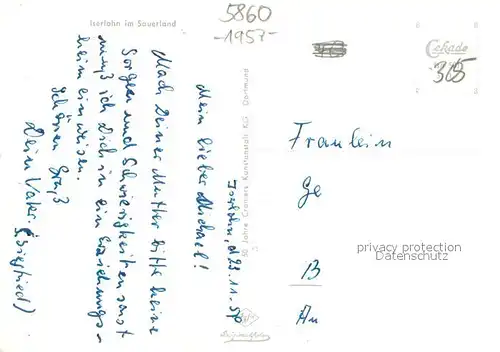 Iserlohn im Sauerland
5860
-1957-
Cekade
305
Iserlohn, d. 23.11.57
Mein lieber Michael!
Mach Deiner Mutter bitte keine
Sorgen und Schwierigkeiten sonst
muß ich Dich in ein Erziehungs-
heim einweisen.
schönen Gruß
Dein Vater.
(Siegfried)
50 Jahre Cramers Kunstanstalt KG Dortmund
Fraulein
Ge
B
An
privacy protection
Datenschutz